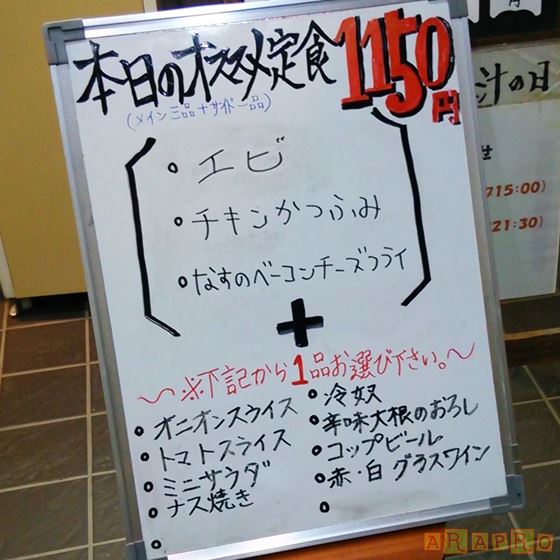 本日のオススメ定食 1150円
(メイン三品+サイド一品)
• エビ
• チキンかつふみ
• なすのベーコンチーズフライ
+
〜※下記から1品お選び下さい。〜
• オニオンスライス
• トマトスライス
• ミニサラダ
• ナス焼き
•
• 冷奴
• 辛味大根のおろし
• コップビール
• 赤・白 グラスワイン
•
汁の日
15:00)
21:30)
ARAPRO